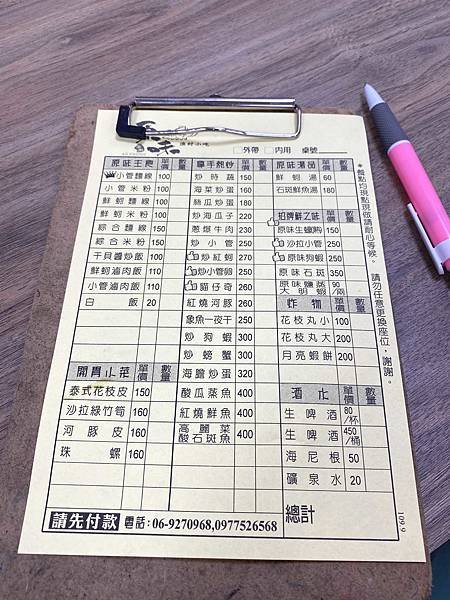 漁村小吃
□外帶 □内用 桌號
原味主食 單價 數量
小管麵線 150
小管米粉 100
鮮蚵麵線 100
鮮蚵米粉 100
綜合麵線 150
綜合米粉 150
干貝醬炒飯 100
鮮蚵滷肉飯 110
小管滷肉飯 110
白飯 20
開胃小菜 單價 數量
泰式花枝皮 150
沙拉綠竹筍 160
河豚皮 160
珠螺 160
拿手熱炒 單價 數量
炒時蔬 150
海菜炒蛋 160
絲瓜炒蛋 180
炒海瓜子 220
蔥爆牛肉 230
炒小管 250
炒紅蚵 270
炒小管卵 250
貓仔奇 260
紅燒河豚 260
象魚一夜干 250
炒狗蝦 300
炒螃蟹 300
海膽炒蛋 320
酸瓜蒸魚 400
紅燒鮮魚 400
高麗菜酸石斑魚 400
原味湯品 單價 數量
鮮蚵湯 60
石斑鮮魚湯 180
招牌鮮之味 單價 數量
原味生蠔 150
沙拉小管 250
原味狗蝦 250
原味石斑 350
原味鹽蒸大明蝦 90/兩
炸物 單價 數量
花枝丸小 100
花枝丸大 200
月亮蝦餅 200
酒水 單價 數量
生啤酒 80/杯
生啤酒 450/桶
海尼根 50
礦泉水 20
總計
請先付款 電話:06-9270968,0977526568
*餐點均現點現做請耐心等候。 請勿任意更換座位,謝謝。
109.9